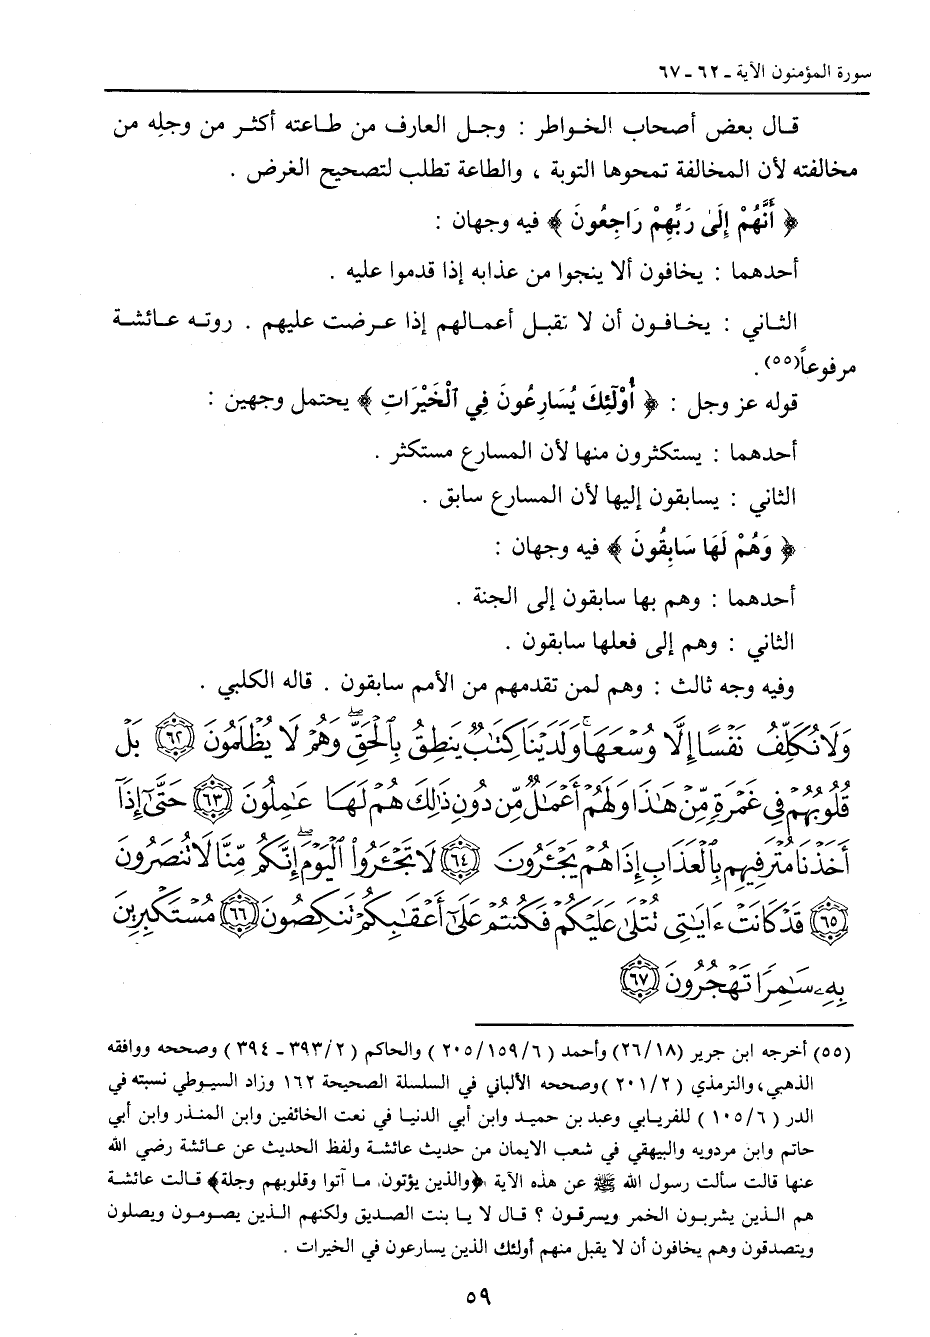 سورة المؤمنون الآية - ٦٢ - ٦٧
قال بعض أصحاب الخواطر : وجل العارف من طاعته أكثر من وجلِه من
مخالفته لأن المخالفة تمحوها التوبة ، والطاعة تطلب لتصحيح الغرض .
﴿ أَنَّهُمْ إِلَىٰ رَبِّهِمْ رَاجِعُونَ ﴾ فيه وجهان :
أحدهما : يخافون ألا ينجوا من عذابه إذا قدموا عليه .
الثاني : يخافون أن لا تقبل أعمالهم إذا عرضت عليهم . روته عائشة
مرفوعاً(٥٥) .
قوله عز وجل : ﴿ أُوْلَٰٓئِكَ يُسَارِعُونَ فِي ٱلْخَيْرَاتِ ﴾ يحتمل وجهين :
أحدهما : يستكثرون منها لأن المسارع مستكثر .
الثاني : يسابقون إليها لأن المسارع سابق .
﴿ وَهُمْ لَهَا سَابِقُونَ ﴾ فيه وجهان :
أحدهما : وهم بها سابقون إلى الجنة .
الثاني : وهم إلى فعلها سابقون .
وفيه وجه ثالث : وهم لمن تقدمهم من الأمم سابقون . قاله الكلبي .
وَلَا نُكَلِّفُ نَفْسًا إِلَّا وُسْعَهَا ۚ وَلَدَيْنَا كِتَٰبٌ يَنطِقُ بِٱلْحَقِّ ۖ وَهُمْ لَا يُظْلَمُونَ ﴿٦٢﴾ بَلْ
قُلُوبُهُمْ فِي غَمْرَةٍ مِّنْ هَٰذَا وَلَهُمْ أَعْمَٰلٌ مِّن دُونِ ذَٰلِكَ هُمْ لَهَا عَٰمِلُونَ ﴿٦٣﴾ حَتَّىٰٓ إِذَآ
أَخَذْنَا مُتْرَفِيهِم بِٱلْعَذَابِ إِذَا هُمْ يَجْـَٔرُونَ ﴿٦٤﴾ لَا تَجْـَٔرُوا۟ ٱلْيَوْمَ ۖ إِنَّكُم مِّنَّا لَا تُنصَرُونَ
﴿٦٥﴾ قَدْ كَانَتْ ءَايَٰتِى تُتْلَىٰ عَلَيْكُمْ فَكُنتُمْ عَلَىٰٓ أَعْقَٰبِكُمْ تَنكِصُونَ ﴿٦٦﴾ مُسْتَكْبِرِينَ
بِهِۦ سَٰمِرًا تَهْجُرُونَ ﴿٦٧﴾
(٥٥) أخرجه ابن جرير (٢٦/١٨) وأحمد ( ٢٠٥/١٥٩/٦ ) والحاكم ( ٣٩٣/٢ - ٣٩٤ ) وصححه ووافقه
الذهبي، والترمذي ( ٢٠١/٢ )وصححه الألباني في السلسلة الصحيحة ١٦٢ وزاد السيوطي نسبته في
الدر ( ١٠٥/٦ ) للفريابي وعبد بن حميد وابن أبي الدنيا في نعت الخائفين وابن المنذر وابن أبي
حاتم وابن مردويه والبيهقي في شعب الايمان من حديث عائشة ولفظ الحديث عن عائشة رضي الله
عنها قالت سألت رسول الله ﷺ عن هذه الآية ﴿والذين يؤتون ما آتوا وقلوبهم وجلة﴾ قالت عائشة
هم الذين يشربون الخمر ويسرقون ؟ قال لا يا بنت الصديق ولكنهم الذين يصومون ويصلون
ويتصدقون وهم يخافون أن لا يقبل منهم أولئك الذين يسارعون في الخيرات .
٥٩